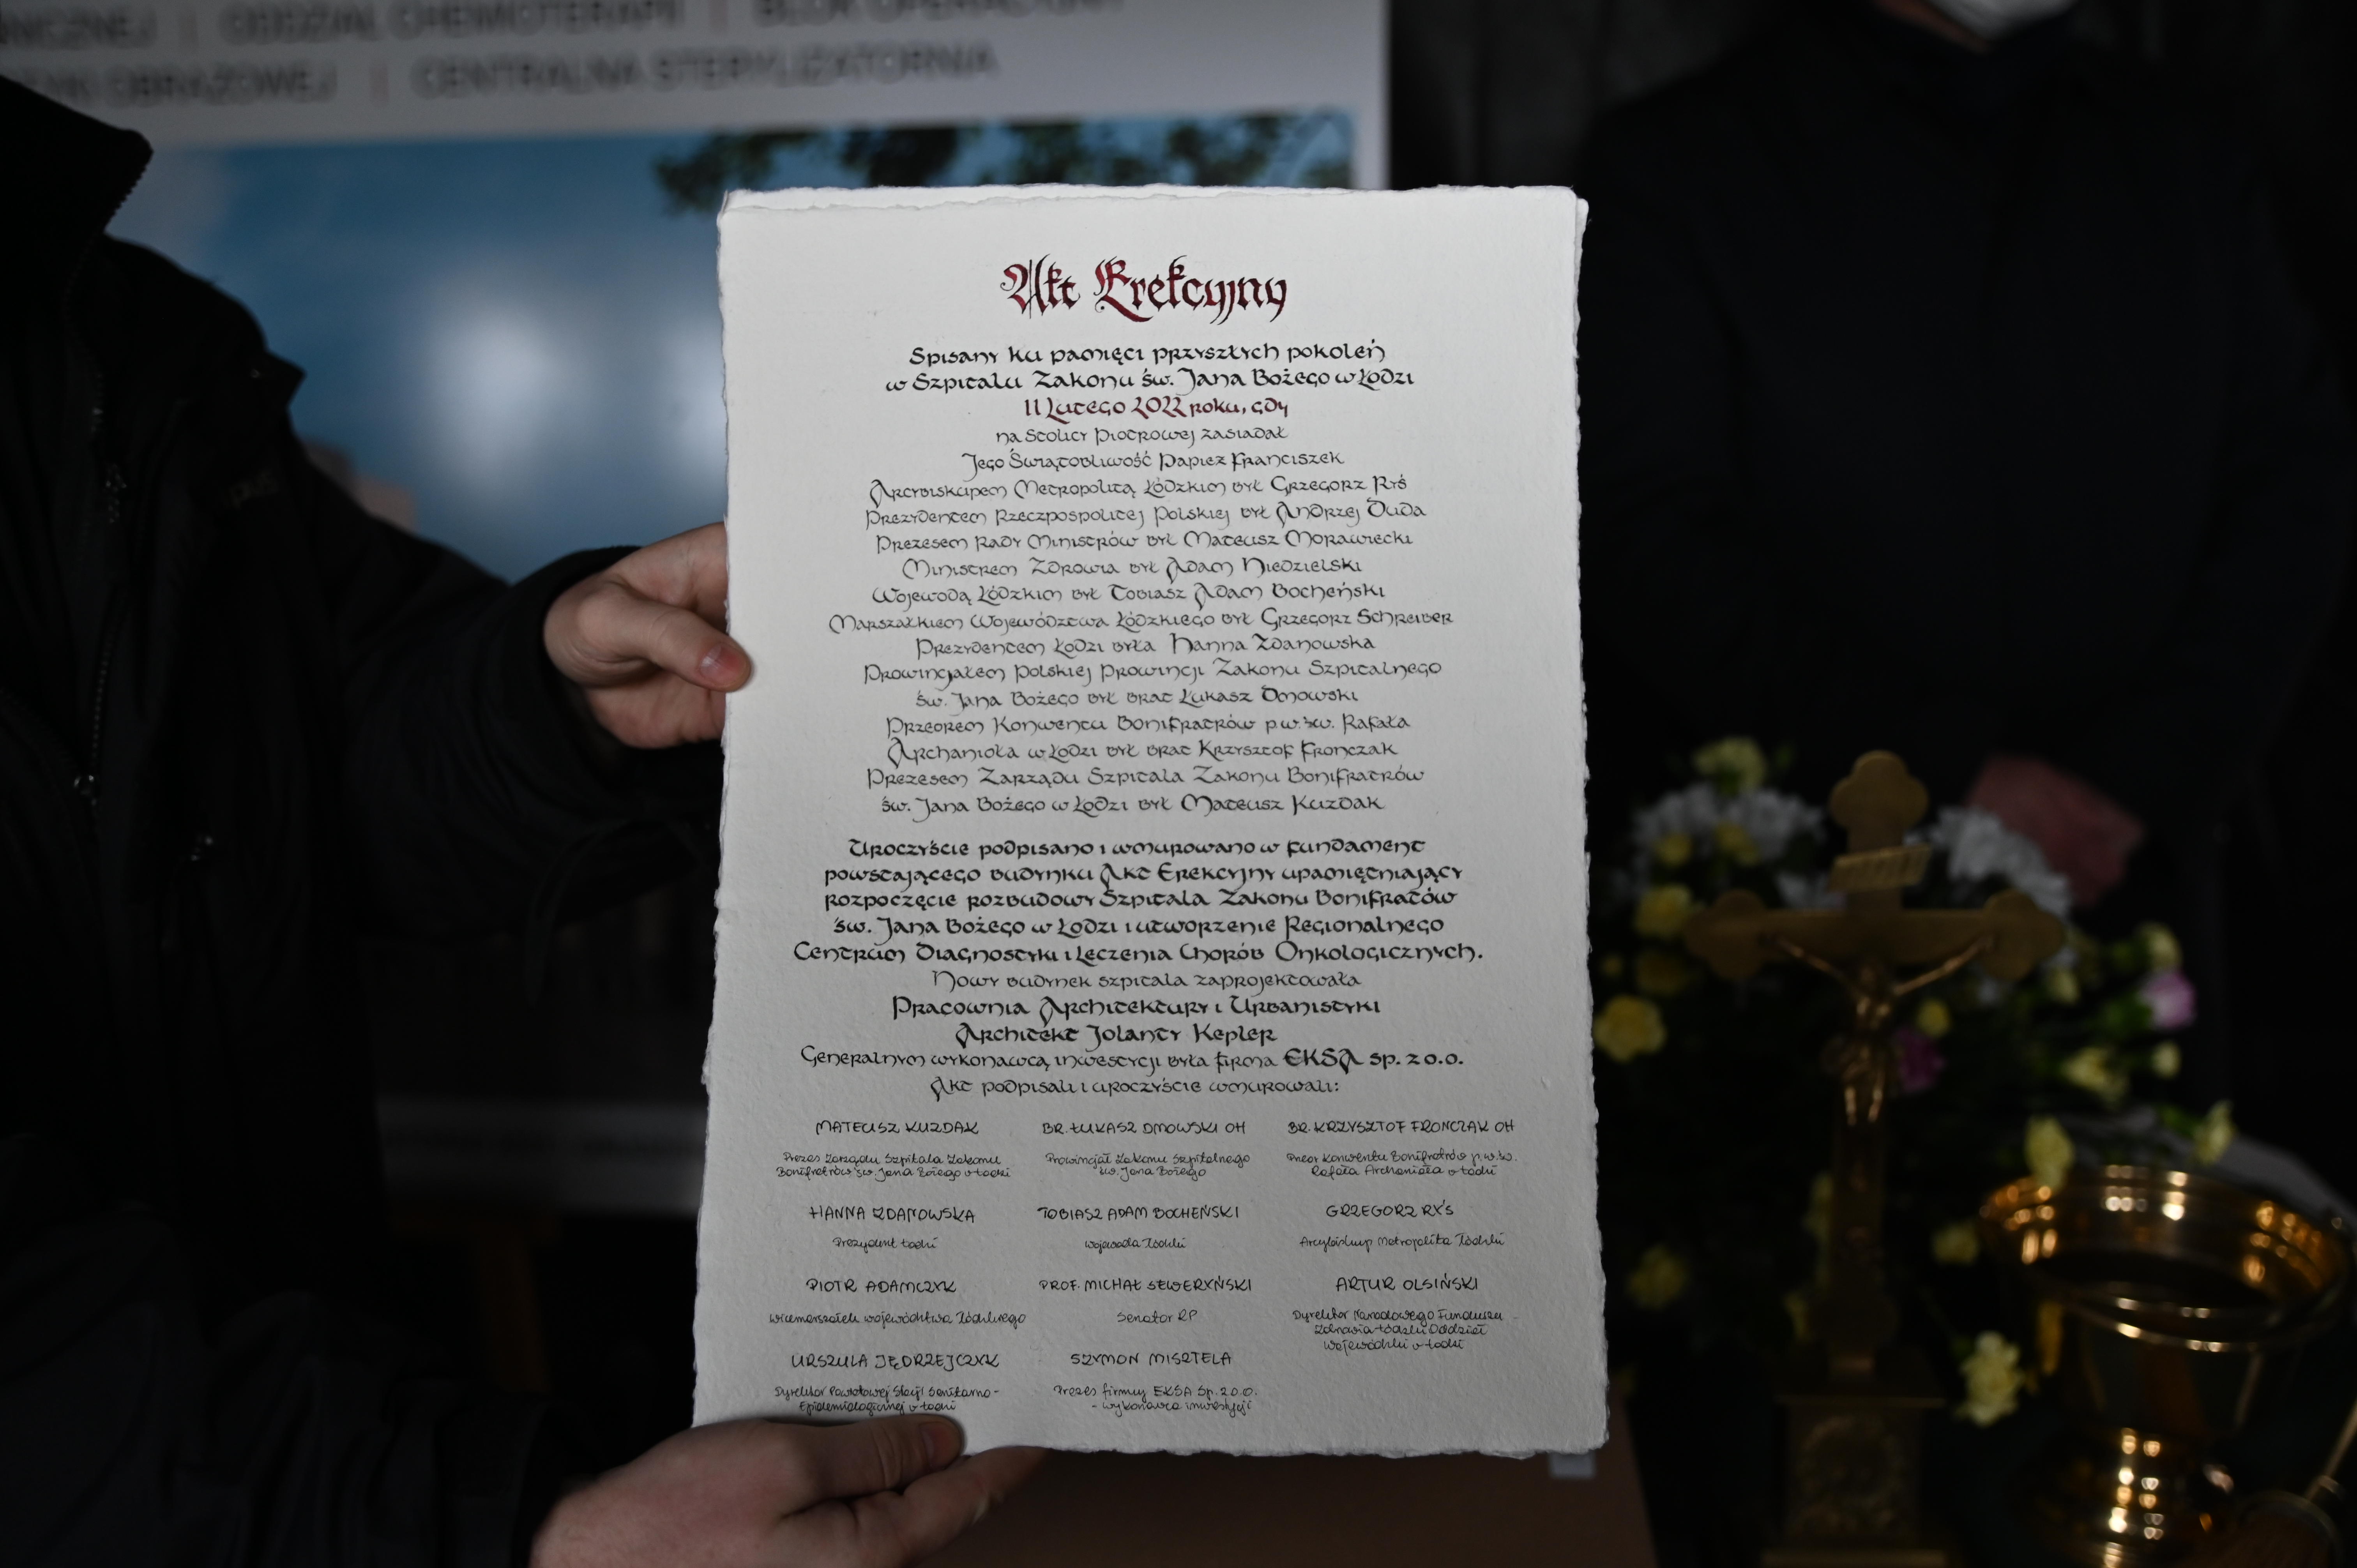 ODDZIAŁ CHEMIOTERAPII | BLOK OPERACYJNY
OBRAZOWEJ | CENTRALNA STERYLIZATORNIA
Akt Erekcyjny
Spisany ku pamięci przyszłych pokoleń
w Szpitalu Zakonu św. Jana Bożego w Łodzi
11 Lutego 2022 roku, gdy
na Stolicy Piotrowej zasiadał
Jego Świątobliwość Papież Franciszek
Arcybiskupem Metropolitą Łódzkim był Grzegorz Ryś
Prezydentem Rzeczpospolitej Polskiej był Andrzej Duda
Prezesem Rady Ministrów był Mateusz Morawiecki
Ministrem Zdrowia był Adam Niedzielski
Wojewodą Łódzkim był Tobiasz Adam Bocheński
Marszałkiem Województwa Łódzkiego był Grzegorz Schreiber
Prezydentem Łodzi była Hanna Zdanowska
Prowincjałem Polskiej Prowincji Zakonu Szpitalnego
św. Jana Bożego był brat Łukasz Dmowski
Przeorem Konwentu Bonifratrów p.w. św. Rafała
Archanioła w Łodzi był brat Krzysztof Fronczak
Prezesem Zarządu Szpitala Zakonu Bonifratrów
św. Jana Bożego w Łodzi był Mateusz Kuzdak
Uroczyście podpisano i wmurowano w fundament
powstającego budynku Akt Erekcyjny upamiętniający
rozpoczęcie rozbudowy Szpitala Zakonu Bonifratów
św. Jana Bożego w Łodzi i utworzenie Regionalnego
Centrum Diagnostyki i Leczenia Chorób Onkologicznych.
Nowy budynek szpitala zaprojektowała
Pracownia Architektury i Urbanistyki
Architekt Jolanty Kepler
Generalnym wykonawcą inwestycji była firma EKSA sp. z o.o.
Akt podpisali i uroczyście wmurowali:
MATEUSZ KUZDAK BR. ŁUKASZ DMOWSKI OH BR. KRZYSZTOF FRONCZAK OH
Prezes Zarządu Szpitala Zakonu Prowincjał Zakonu Szpitalnego Przeor Konwentu Bonifratrów p.w. św.
Bonifratrów św. Jana Bożego w Łodzi św. Jana Bożego Rafała Archanioła w Łodzi
HANNA ZDANOWSKA TOBIASZ ADAM BOCHEŃSKI GRZEGORZ RYŚ
Prezydent Łodzi Wojewoda Łódzki Arcybiskup Metropolita Łódzki
PIOTR ADAMCZYK PROF. MICHAŁ SEWERYŃSKI ARTUR OLSIŃSKI
Wicemarszałek województwa łódzkiego Senator RP Dyrektor Narodowego Funduszu
Zdrowia Łódzki Oddział
Wojewódzki w Łodzi
URSZULA JĘDRZEJCZYK SZYMON MISZTELA
Dyrektor Powiatowej Stacji Sanitarno- Prezes firmy EKSA Sp. z o.o.
Epidemiologicznej w Łodzi - wykonawca inwestycji